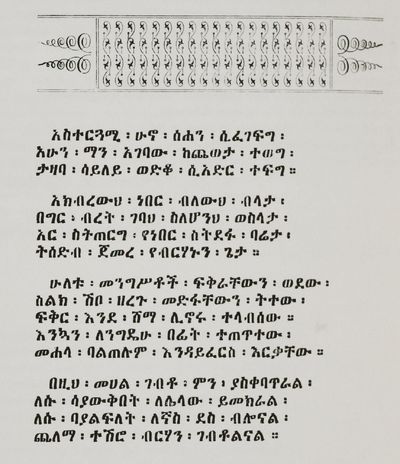 አስተርጓሚ ፡ ሁኖ ፡ ሰሐን ፡ ሲፈገፍግ ፡
አሁን ፡ ማን ፡ አገባው ፡ ከጨዋታ ፡ ተወግ ፡
ታዛባ ፡ ሳይለይ ፡ ወድቆ ፡ ሲአድር ፡ ተፍግ ።
አክብረውህ ፡ ነበር ፡ ብለውህ ፡ ብላታ ፡
በግር ፡ ብረት ፡ ገባህ ፡ ስለሆንህ ፡ ወስላታ ፡
አር ፡ ስትጠርግ ፡ የነበር ፡ ስትደፋ ፡ ባሬታ ፡
ትሰድብ ፡ ጀመረ ፡ የብርሃኑን ፡ ጌታ ።
ሁለቱ ፡ መንግሥቶች ፡ ፍቅራቸውን ፡ ወደው ፡
ስልክ ፡ ሽቦ ፡ ዘረጉ ፡ መድፋቸውን ፡ ትተው ፡
ፍቅር ፡ እንደ ፡ ሸማ ፡ ሊኖሩ ፡ ተላብሰው ።
እንኳን ፡ ለንግዴሁ ፡ በፊት ፡ ተጠጥተው ፡
መሐላ ፡ ባልጠሉም ፡ እንዳይፈርስ ፡ እርቃቸው ።
በዚህ ፡ መሀል ፡ ገብቶ ፡ ምን ፡ ያስቀባጥራል ፡
ለሱ ፡ ሳያውቅበት ፡ ለሌላው ፡ ይመክራል ፡
ለሱ ፡ ባያልፍለት ፡ ለኛስ ፡ ደስ ፡ ብሎናል ፡
ጨለማ ፡ ተሽሮ ፡ ብርሃን ፡ ገብቶልናል ።